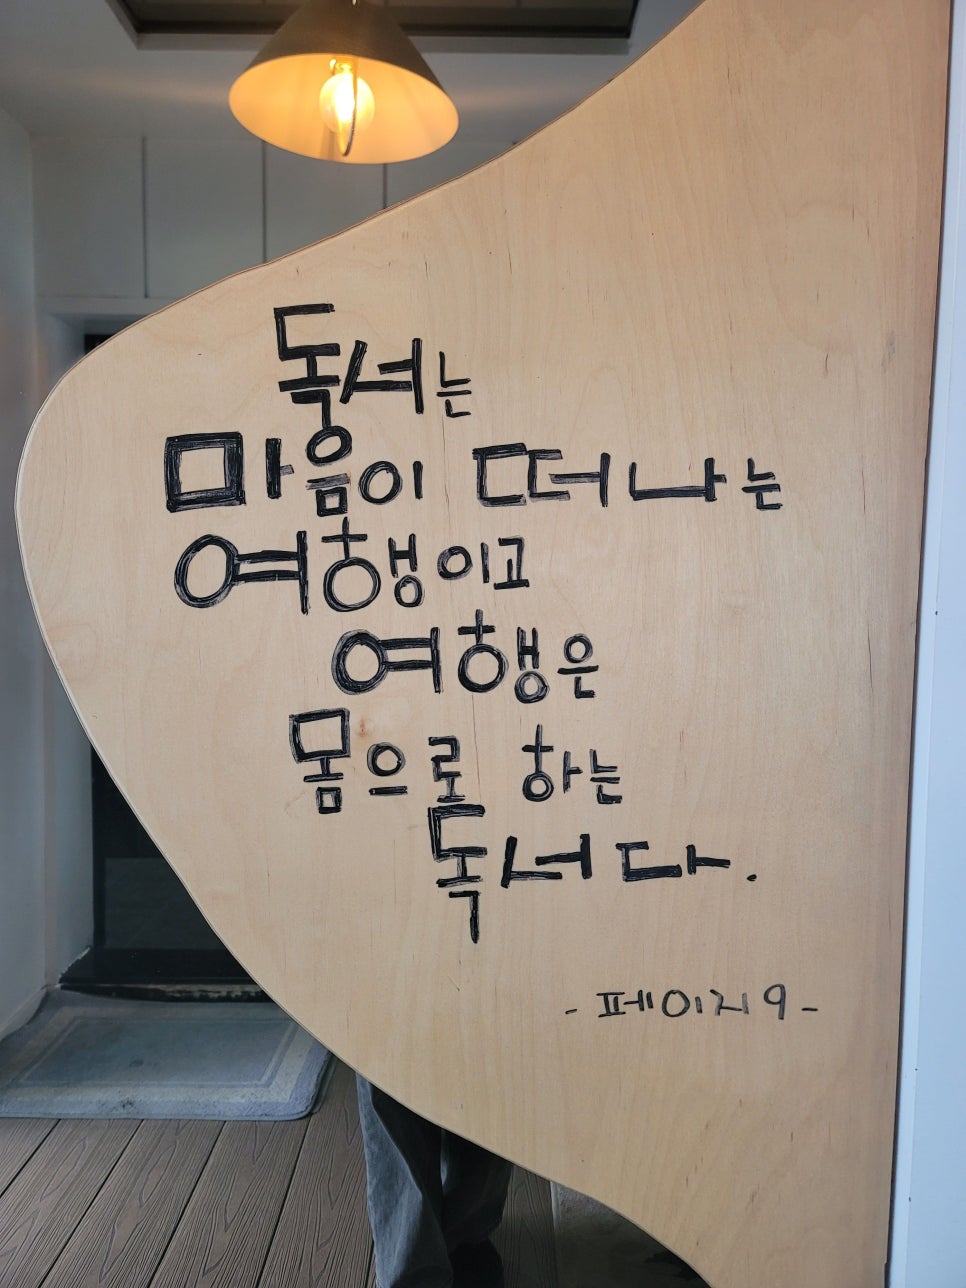 독서는
마음이 떠나는
여행이고
여행은
몸으로 하는
독서다.
- 페이지9 -